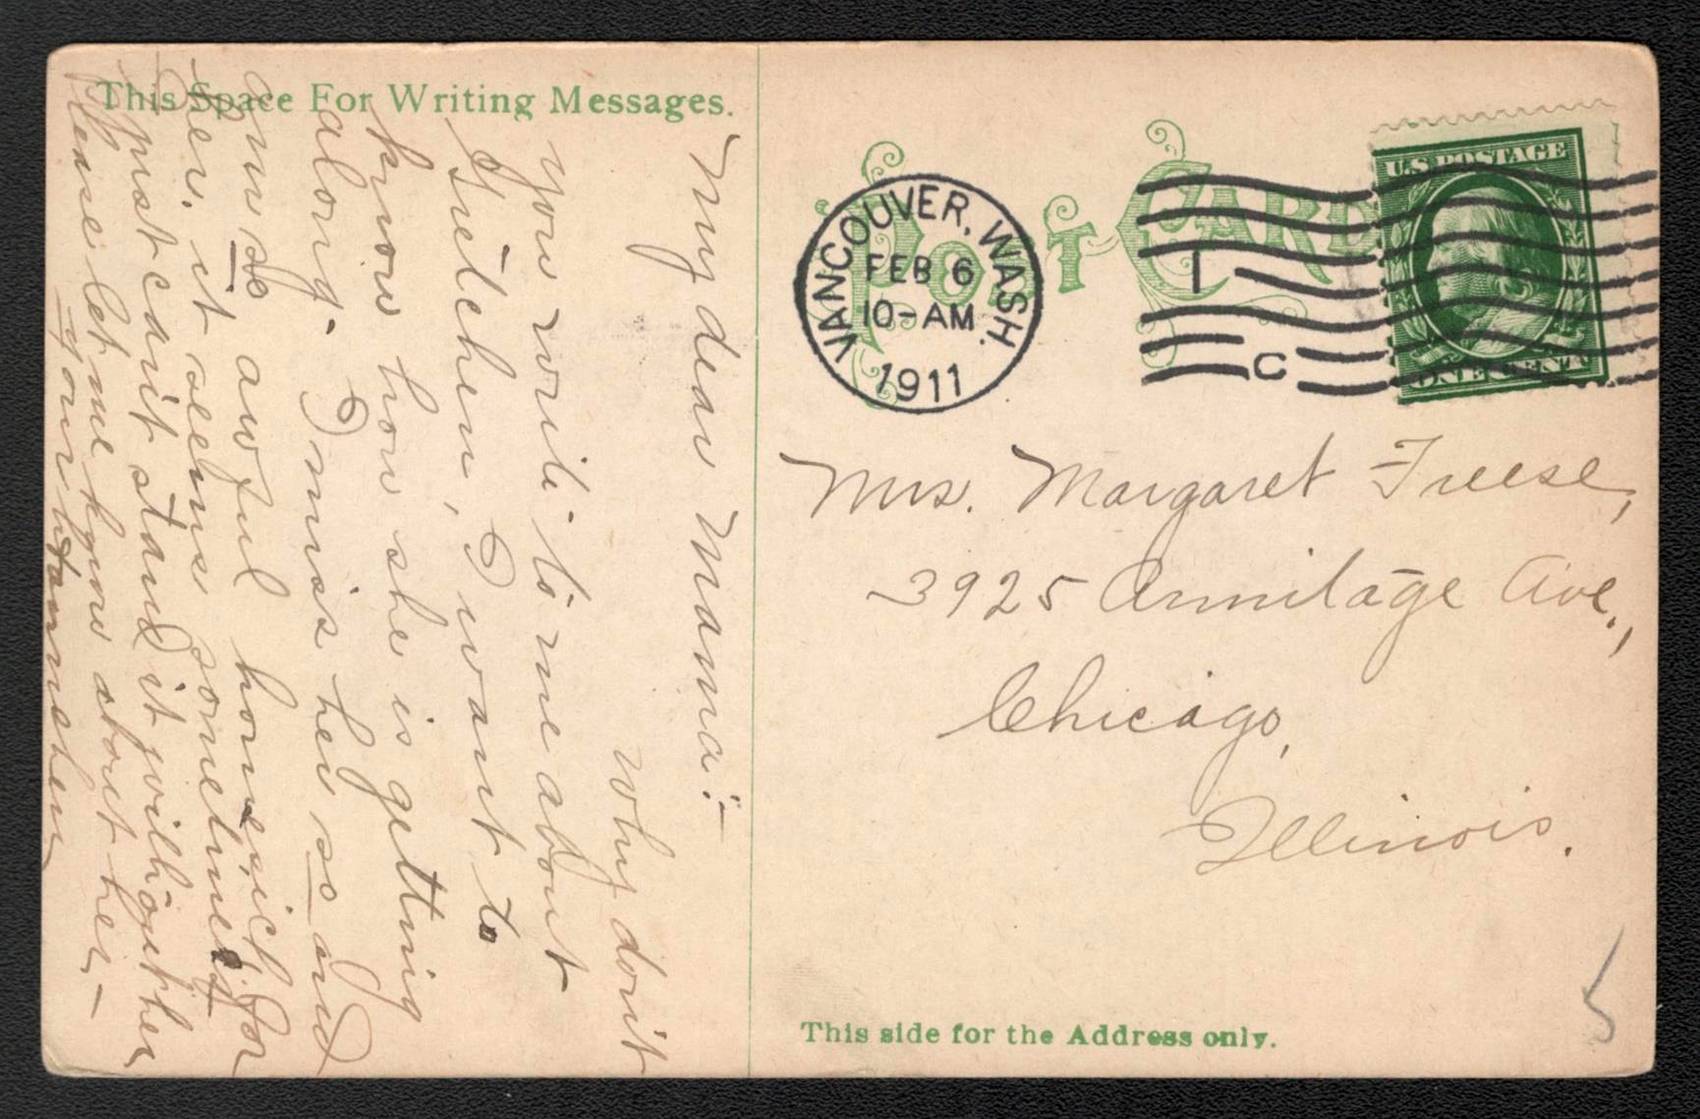 This Space For Writing Messages.
My dear Mama:-
Why don't
you write to me about
Gretchen, I want to
know how she is getting
along. I miss her so and
am so awful homesick for
her, it seems sometimes
I just can't stand it without her
Please let me know about her -
POST CARD
VANCOUVER, WASH.
FEB 6
10-AM
1911
1
C
U.S. POSTAGE
ONE CENT
Mrs. Margaret Freese,
3925 Armitage Ave.,
Chicago,
Illinois.
5
This side for the Address only.